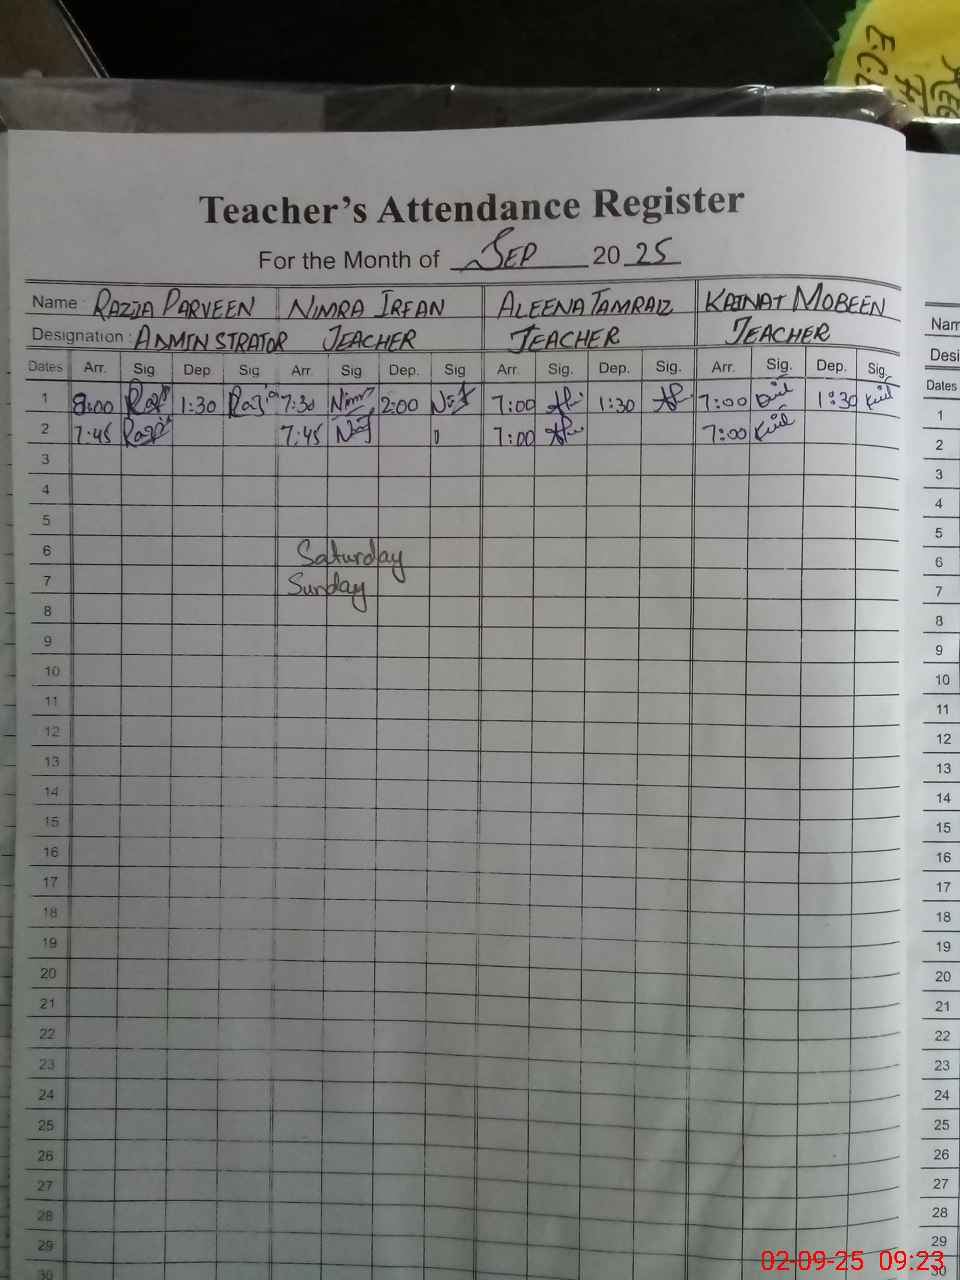 Teacher's Attendance Register
For the Month of Sep 2025
Name : RAZIA PARVEEN NIMRA IRFAN ALEENA TAMRAIZ KAINAT MOBEEN
Designation : ADMINSTRATOR TEACHER TEACHER TEACHER
Dates Arr. Sig Dep Sig Arr. Sig Dep. Sig Arr. Sig. Dep. Sig. Arr. Sig. Dep. Sig.
1 8:00 1:30 7:30 2:00 7:00 1:30 7:00 1:30
2 7:45 7:45 7:00 7:00
3
4
5
6 Saturday
7 Sunday
8
9
10
11
12
13
14
15
16
17
18
19
20
21
22
23
24
25
26
27
28
29
30
Nam
Desi
Dates
1
2
3
4
5
6
7
8
9
10
11
12
13
14
15
16
17
18
19
20
21
22
23
24
25
26
27
28
29
30
02-09-25 09:23